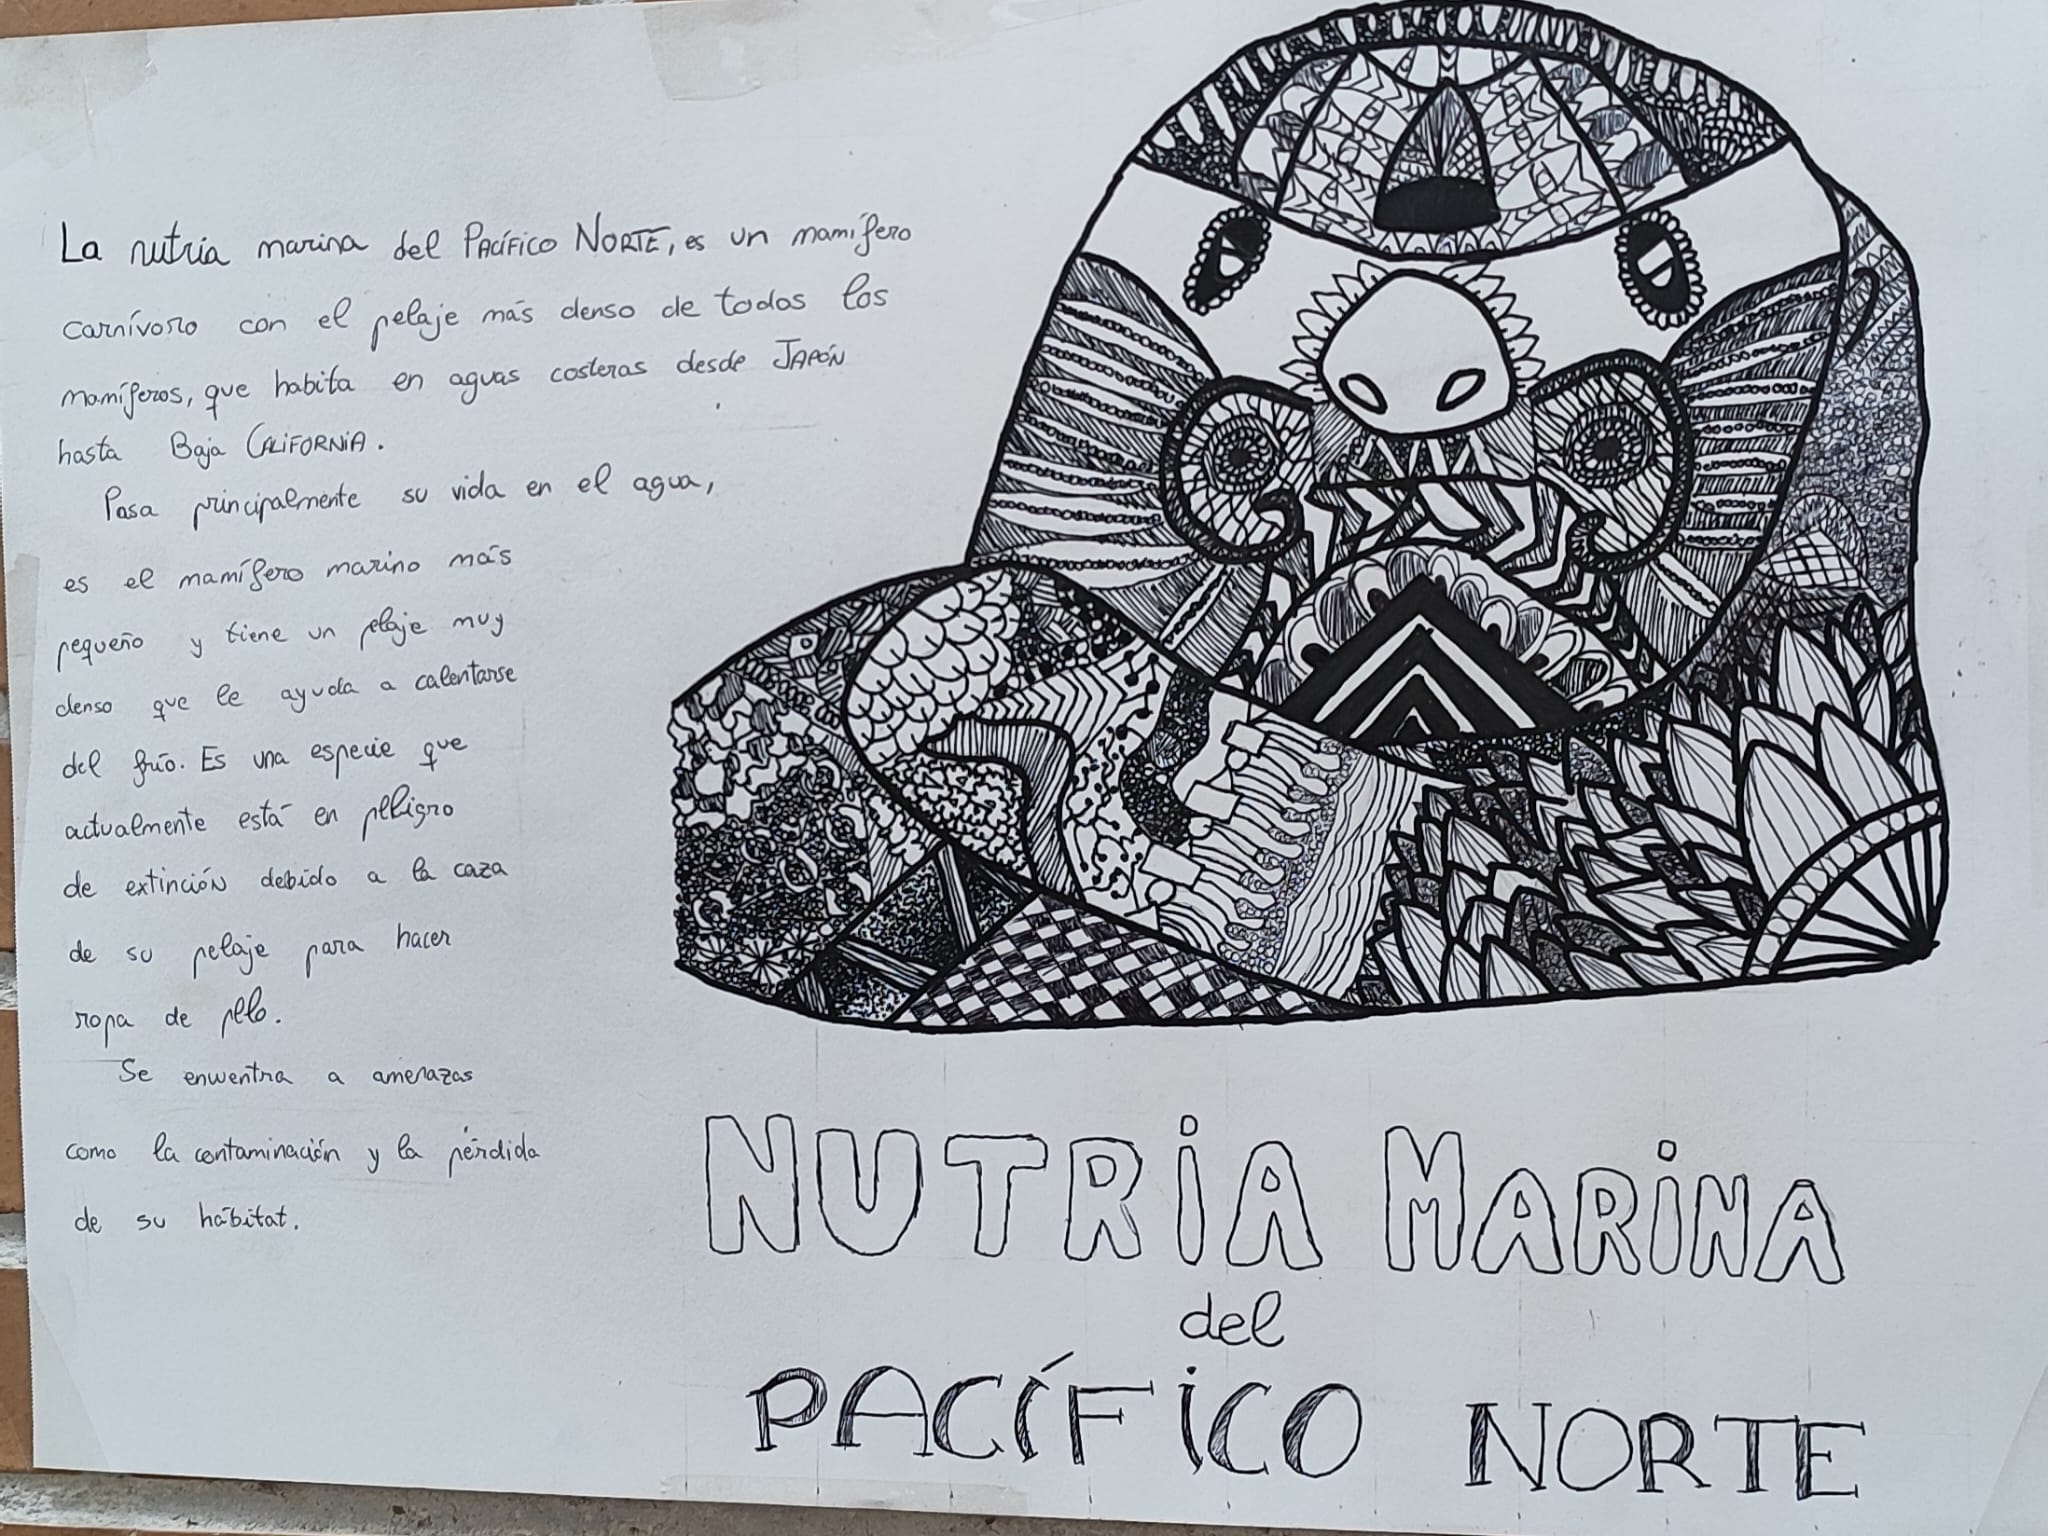 La nutria marina del PACÍFICO NORTE, es un mamífero
carnívoro con el pelaje más denso de todos los
mamíferos, que habita en aguas costeras desde JAPÓN
hasta Baja CALIFORNIA.
Pasa principalmente su vida en el agua,
es el mamífero marino más
pequeño y tiene un pelaje muy
denso que le ayuda a calentarse
del frío. Es una especie que
actualmente está en peligro
de extinción debido a la caza
de su pelaje para hacer
ropa de pelo.
Se encuentra a amenazas
como la contaminación y la pérdida
de su hábitat.
NUTRIA MARINA
del
PACÍFICO NORTE